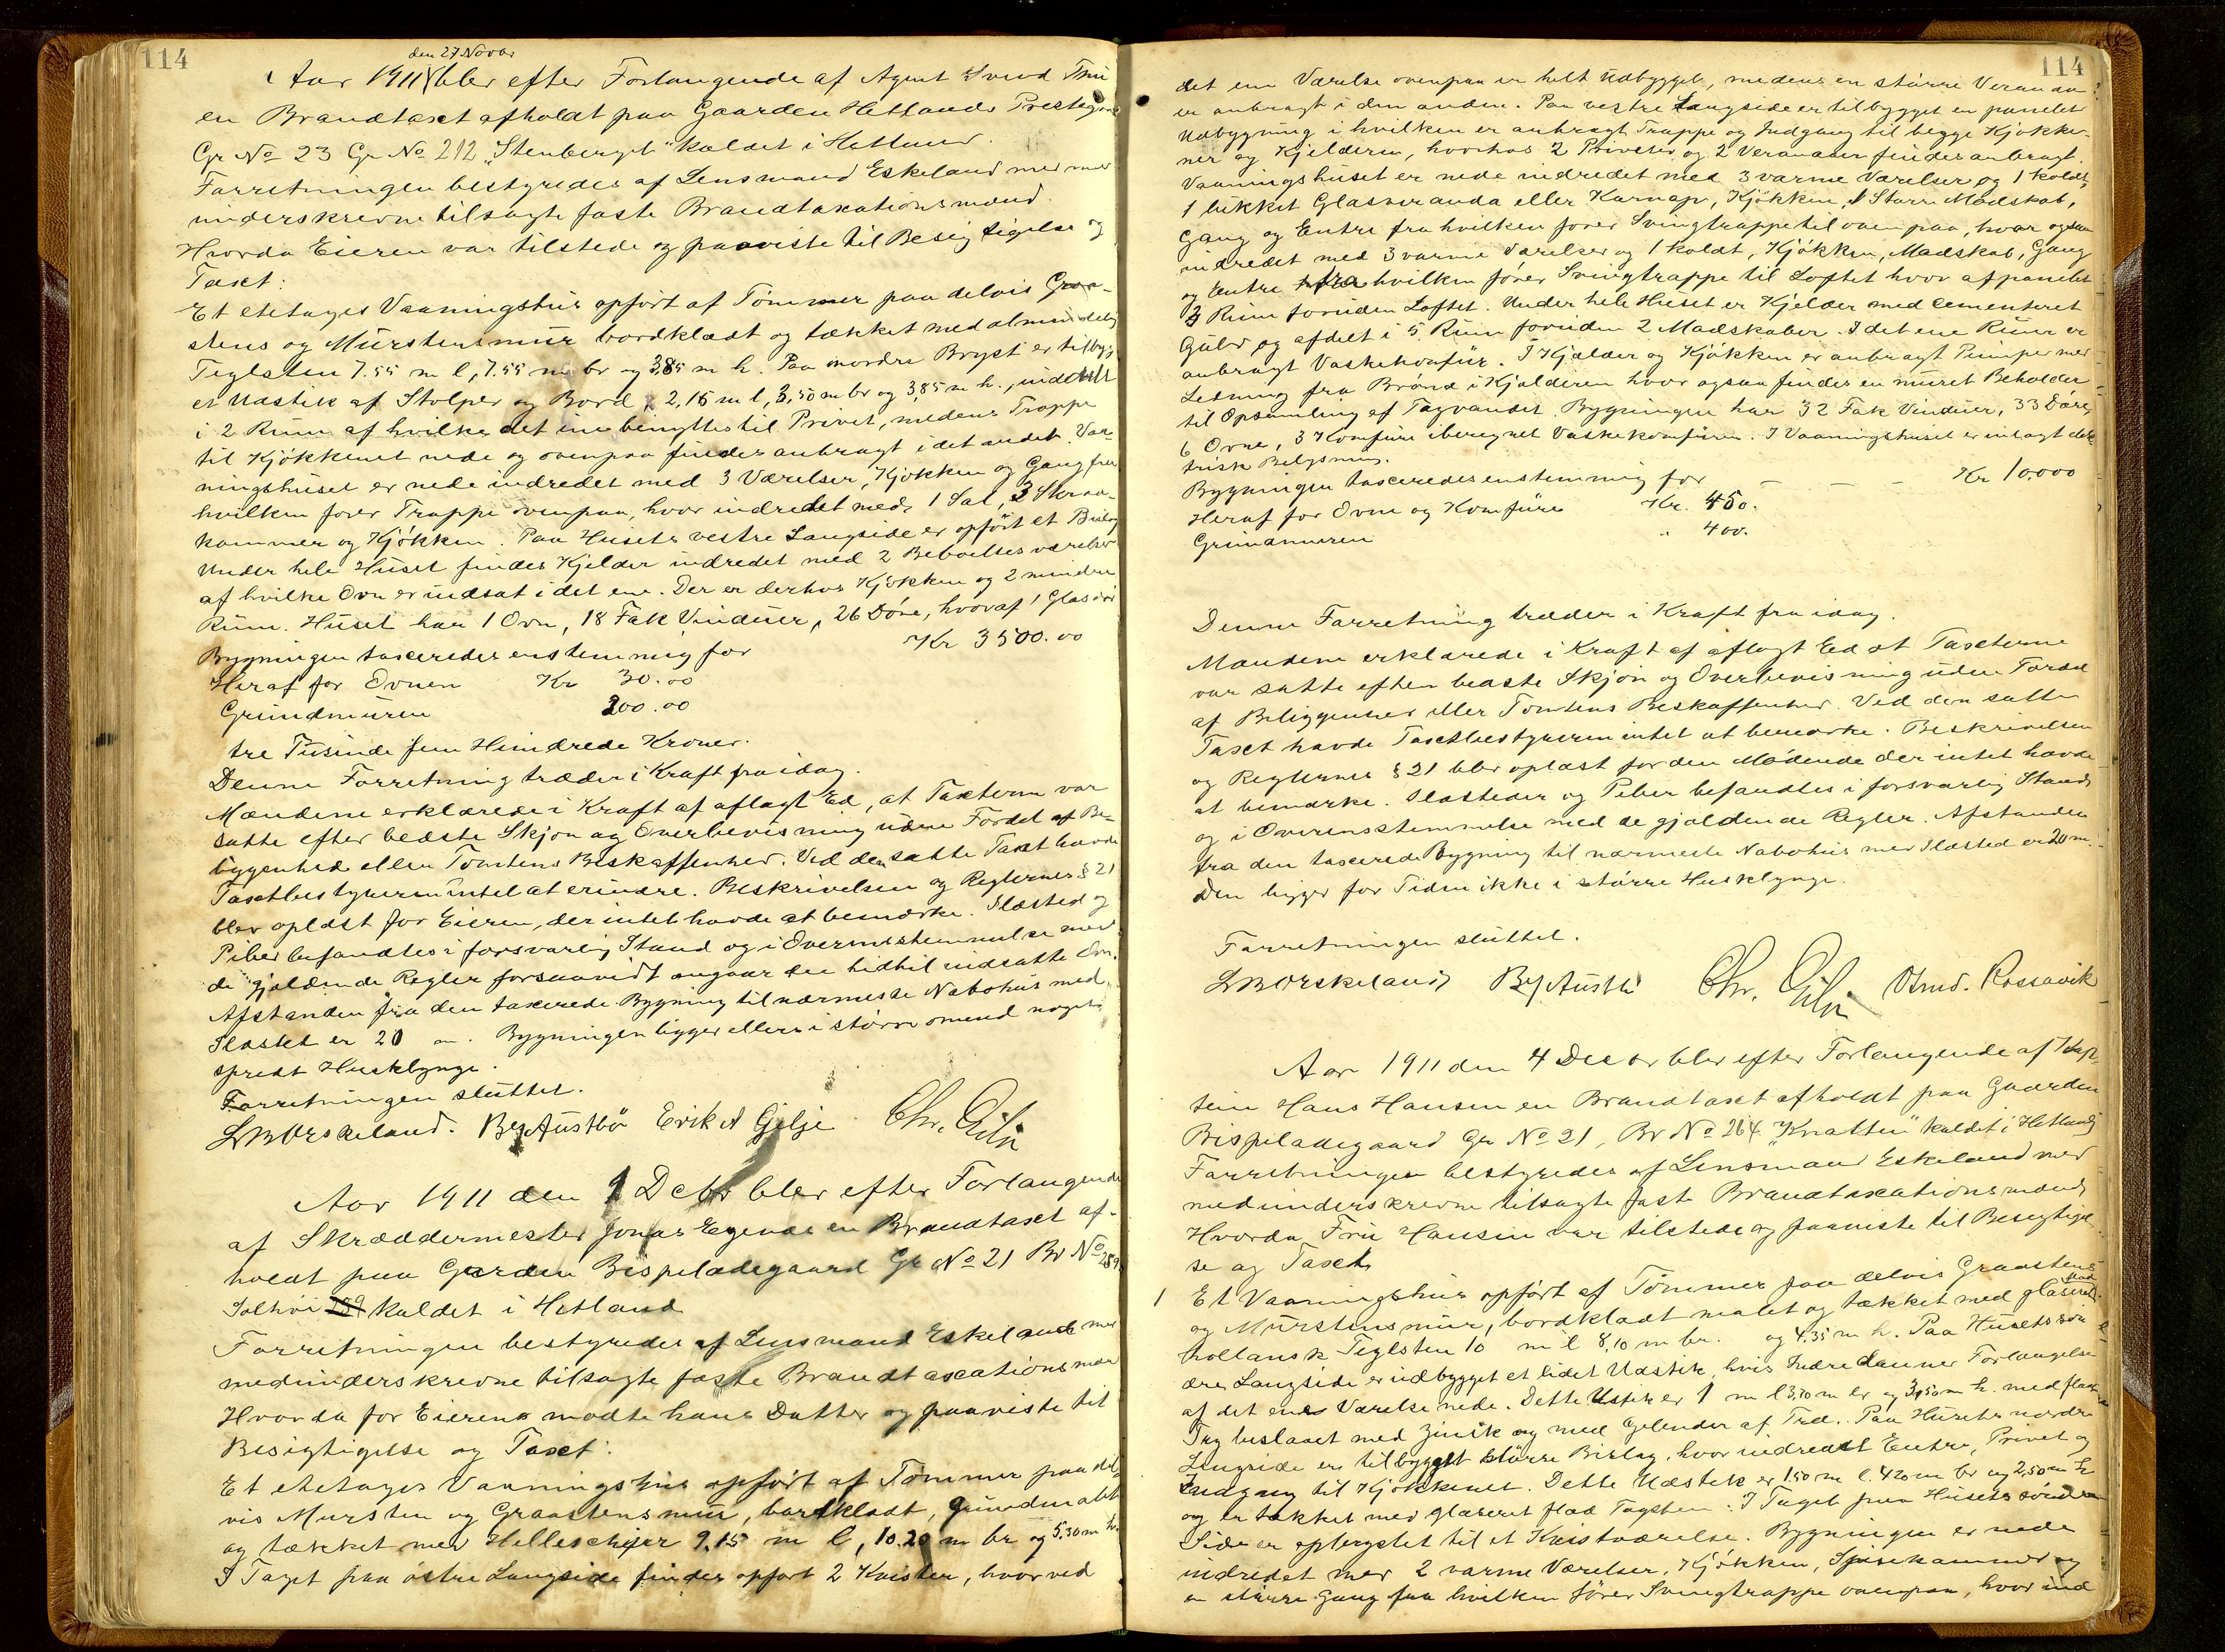 114
den 27 Novbr
Aar 1911 blev efter Forlangende af Agent Svend Thu
en Brandtaxt afholdt paa Gaarden Hetlands Prestegaard
Gr No 23 Gr No 212 "Stenberget" kaldet i Hetland.
Forretningen bestyredes af Lensmand Eskeland med med
underskrevne tilsagte faste Brandtaxationsmænd.
Hvorda Eieren var tilstede og paaviste til Besigtigelse og
Taxt:
Et etetages Vaaningshus opført af Tømmer paa delvis Graa-
stens og Murstensmur bordklædt og tækket med almindelig
Teglsten 7.55 m l, 7.55 m br og 3,85 m h. Paa nordre Bryst er tilbyg
et Udstik af Stolper og Bord, 2,15 m l, 3,50 m br og 3,85 m h., inddelt
i 2 Rum af hvilke det ene benyttes til Privet, medens Trappe
til Kjøkkenet nede og ovenpaa findes anbragt i det andet. Vaa-
ningshuset er nede indredet med 3 Værelser, Kjøkken og Gang fra
hvilken fører Trappe ovenpaa, hvor indredet med 1 Sal, 3 Skraa-
kammer og Kjøkken. Paa Husets vestre Langside er opført et Bislag
Under hele Huset findes Kjelder indredet med 2 Beboelsesværelser
af hvilke Ovn er indsat i det ene. Der er derhos Kjøkken og 2 mindre
Rum. Huset har 1 Ovn, 18 Fak Vinduer, 26 Døre, hvoraf 1 Glasdør
Bygningen taxeredes enstemmig for Kr 3500.00
Heraf for Ovnen Kr 30.00
Grundmuren 200.00
tre Tusinde fem Hundrede Kroner.
Denne Forretning træder i Kraft fra idag.
Mændene erklærede i Kraft af aflagt Ed, at Taxterne var
satte efter bedste Skjøn og Overbevisning uden Fordel af Be-
liggenhed eller Tomtens Beskaffenhed. Ved den satte Taxt havde
Taxtbestyreren intet at erindre. Beskrivelsen og Reglernes § 21
blev oplæst for Eieren, der intet havde at bemærke. Ildsted og
Piber befandtes i forsvarlig Stand og i Overensstemmelse med
de gjældende Regler forsaavidt angaar den hidtil indsatte Ovn.
Afstanden fra den taxerede Bygning til nærmeste Nabohus med
Ildsted er 20 m. Bygningen ligger ellers i større omend noget
spredt Husklynge.
Forretningen sluttet.
LMOrskeland. BJAustbø Erik A Gilje Chr. Gilje
Aar 1911 den 1 Decbr blev efter Forlangende
af Skræddermester Jonas Egende en Brandtaxt af-
holdt paa Garden Bispeladegaard Gr No 21 Br No 289
Solhøi 289 kaldet i Hetland
Forretningen bestyredes af Lensmand Eskeland med
medunderskrevne tilsagte faste Brandtaxationsmæn
Hvorda for Eieren mødte hans Datter og paaviste til
Besigtigelse og Taxt:
Et etetages Vaaningshus opført af Tømmer paa del-
vis Mursten og Graastensmur, bordklædt, grundmalet
og tækket med Helleskifer 9.15 m l, 10.20 m br og 5.30 m h.
I Taget paa østre Langside findes opført 2 Kvister, hvorved
114
det ene Værelse ovenpaa er helt udbygget, medens en større Veranda
er anbragt i den anden. Paa vestre Langside er tilbygget en panelet
Udbygning i hvilken er anbragt Trappe og Indgang til begge Kjøkke-
ner og Kjelderen, hvorhos 2 Priveter og 2 Verandaer findes anbragt.
Vaaningshuset er nede indredet med 3 varme Værelser og 1 koldt,
1 lukket Glasveranda eller Karnap, Kjøkken, 1 Større Madskab,
Gang og Entre fra hvilken fører Svingtrappe til ovenpaa, hvor ogsaa
indredet med 3 varme Værelser og 1 koldt, Kjøkken, Madskab, Gang
og Entre fra hvilken fører Svingtrappe til Loftet hvor afpanelet
3 Rum foruden Loftet. Under hele Huset er Kjelder med cementeret
Gulv og afdelt i 5 Rum foruden 2 Madskaber. I det ene Rum er
anbragt Vaskekomfur. I Kjælder og Kjøkken er anbragt Pumpe med
Ledning fra Brønd i Kjælderen hvor ogsaa findes en muret Beholder
til Opsamling af Tagvandet. Bygningen har 32 Fak Vinduer, 33 Døre,
6 Ovne, 3 Komfure iberegnet Vaskekomfuren. I Vaaningshuset er inlagt elek
trisk Belysning.
Bygningen taxeredes enstemmig for - - - Kr 10.000
Heraf for Ovne og Komfure Kr. 450.
Grundmuren " 400.
Denne Forretning træder i Kraft fra idag.
Mændene erklærede i Kraft af aflagt Ed at Taxterne
var satte efter bedste Skjøn og Overbevisning uden Fordel
af Beliggenhed eller Tomtens Beskaffenhed. Ved den satte
Taxt havde Taxtbestyreren intet at bemærke. Beskrivelsen
og Reglernes § 21 blev oplæst for den Mødende der intet havde
at bemærke. Ildsteder og Piber befandtes i forsvarlig Stand
og i Overensstemmelse med de gjældende Regler. Afstanden
fra den taxerede Bygning til nærmeste Nabohus med Ildsted er 20 m.
Den ligger for Tiden ikke i større Husklynge.
Forretningen sluttet.
LMOrskeland BJAustbø Chr. Gilje Osmd. Rossavik
Aar 1911 den 4 Decbr blev efter Forlangende af Kap-
tein Hans Hansen en Brandtaxt afholdt paa Gaarden
Bispeladegaard Gr No 21, Br No 264 "Knatten" kaldet i Hetland
Forretningen bestyredes af Lensmand Eskeland med
medunderskrevne tilsagte faste Brandtaxationsmænd
Hvorda Fru Hansen var tilstede og paaviste til Besigtigel
se og Taxt
1 Et Vaaningshus opført af Tømmer paa delvis Graastens
og Murstensmur, bordklædt malet og tækket med glaseret flad
hollansk Teglsten 10 m l 8,10 m br. og 4,35 m h. Paa Husets søn
dre Langside er udbygget et lidet Udstik, hvis Indre danner Forlængelse
af det ene Værelse nede. Dette Udstik er 1 m l 3,70 m br og 3,50 m h. med fladt
Tag beslaaet med Zink og med Gelender af Træ. Paa Husets nordre
Langside er tilbygget større Bislag, hvor indredet Entre, Privet og
Indgang til Kjøkkenet. Dette Udstik er 1,50 m l. 4,20 m br og 2,50 m h
og er tækket med glaseret flad Tagsten. I Taget paa Husets søndre
Side er opbygget til et Kvistværelse. Bygningen er nede
indredet med 2 varme Værelser, Kjøkken, Spisekammer og
en større Gang fra hvilken fører Svingtrappe ovenpaa, hvor ind